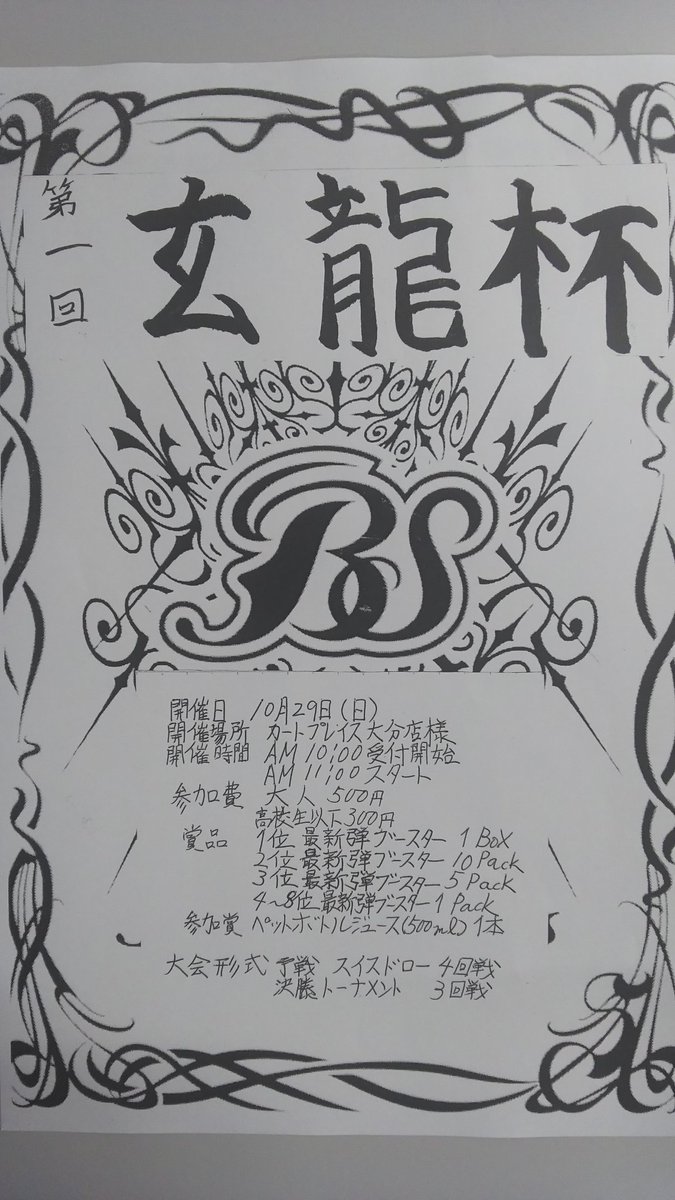 第一回
玄龍杯
BS
開催日 10月29日(日)
開催場所 カートプレイス大分店様
開催時間 AM 10:00 受付開始
AM 11:00 スタート
参加費 大人 500円
高校生以下 300円
賞品 1位 最新弾ブースター 1 Box
2位 最新弾ブースター 10 Pack
3位 最新弾ブースター 5 Pack
4~8位 最新弾ブースター 1 Pack
参加賞 ペットボトルジュース(500ml) 1本
大会形式 予戦 スイスドロー 4回戦
決勝トーナメント 3回戦